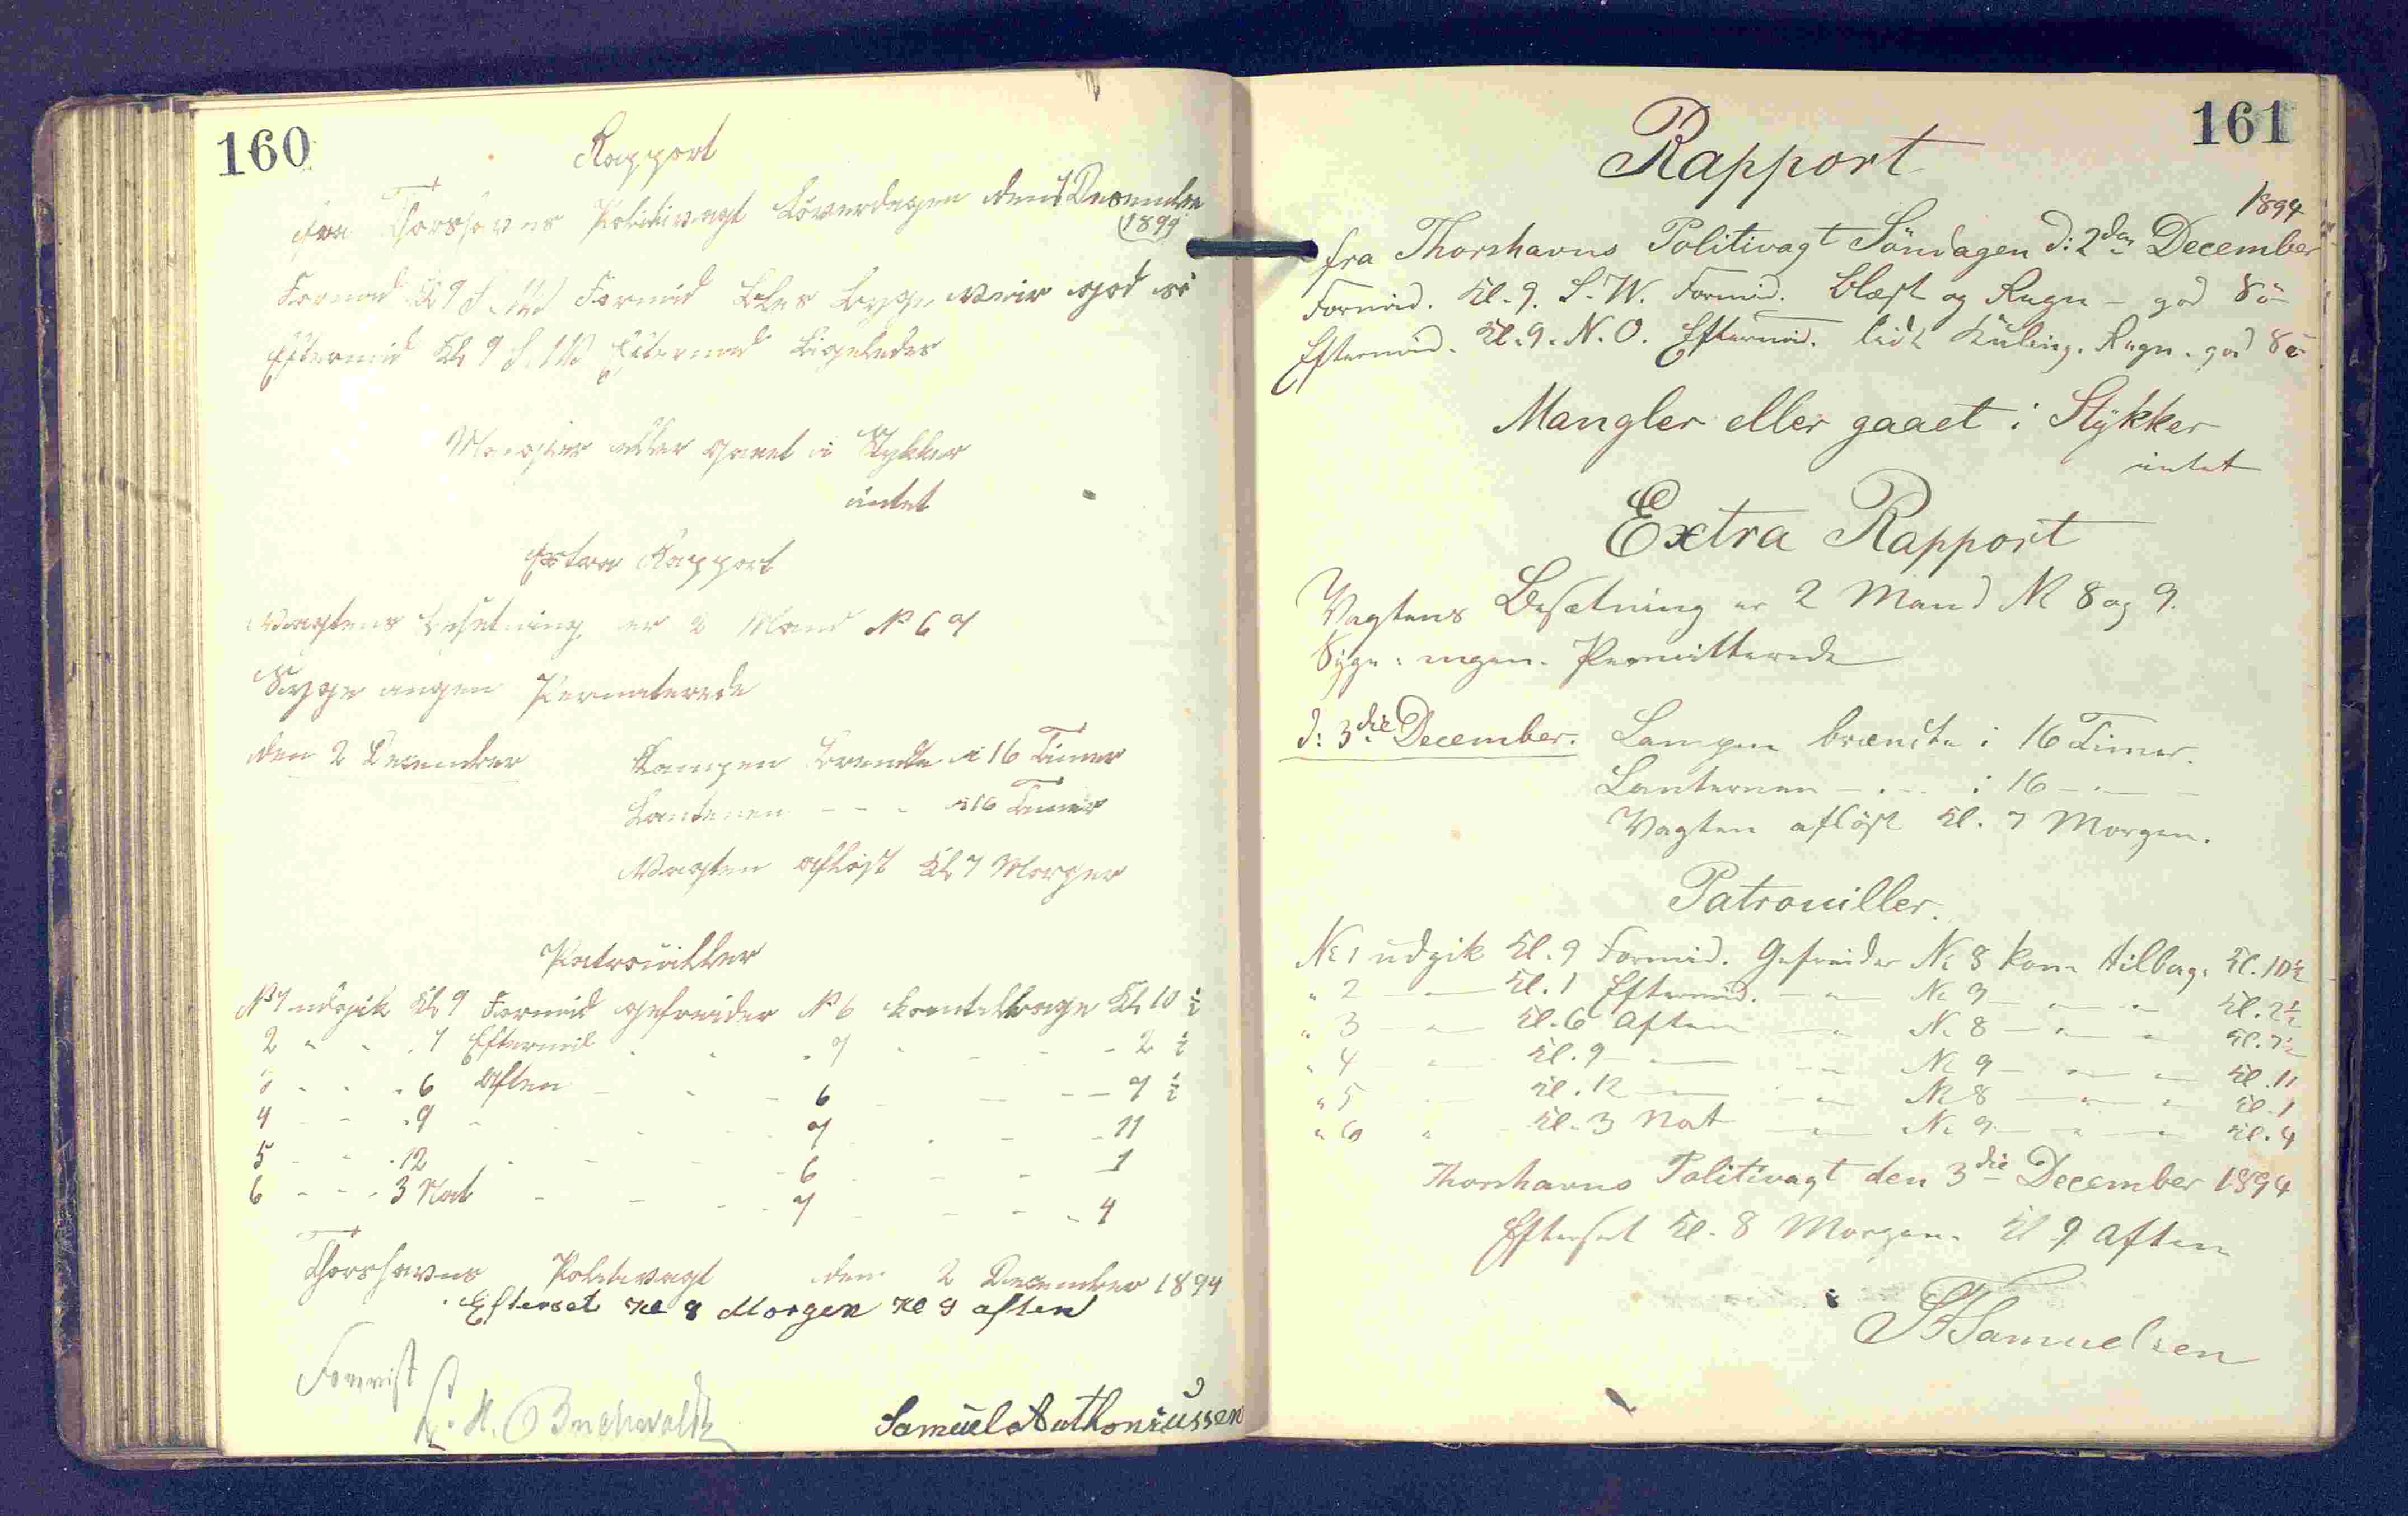 160
Rapport
fra Thorshavns Politivagt Löverdagen den 1 December
1894
Formid Kl 9 S.W. Formid Bles Byge veir god sö
Eftermid Kl 9 S.W. Eftermid Ligeledes
Mangler eller gaaet i Stykker
intet
Extra Rapport
Vagtens Besetning er 2 Mand № 6 7
Syge ingen Permiterede
den 2 December Lampen Brende i 16 Timer
Lanternen - - - i 16 Timer
Vagten aflöst Kl 7 Morgen
Patrouiller
№ 1 udgik Kl 9 Formid gefreider № 6 kom tilbage Kl 10 ½
2 " - . 1 Eftermid . . . 7 - - - - 2 ½
3 - - . 6 Aften - - - 6 - - - - 7 ½
4 - - . 9 - - - - 7 - - - - 11
5 - - . 12 - - - - 6 - - - 1
6 - - . 3 Nat - - - - 7 - - - - 4
Thorshavns Politivagt den 2 December 1894
Efterset Kl 8 Morgen Kl 9 aften
Forevist
H. Buchwaldt
Samuel Anthoniussen
161
Rapport
1894
fra Thorshavns Politivagt Söndagen d: 2den December
Formid. Kl. 9. S.W. Formid. Blæst og Regn - god Sö -
Eftermid. Kl. 9. N.O. Eftermid. lidt Kuling. Regn. god Sö -
Mangler eller gaaet i Stÿkker
intet
Extra Rapport
Vagtens Besætning er 2 Mand № 8 og 9.
Syge: ingen. Permitterede
d: 3die December. Lampen brændte i 16 Timer.
Lanternen - . - . i 16 - . -
Vagten aflöst Kl. 7 Morgen.
Patrouiller.
№ 1 udgik Kl. 9 Formid. Gefreider № 8 kom tilbage Kl. 10½
" 2 - " - Kl. 1 Eftermid. - " - № 9 - " - " Kl. 2½
" 3 - " - Kl. 6 Aften - " - № 8 - " - " Kl. 7½
" 4 - " - Kl. 9 - " - - " - № 9 - " - " Kl. 11
" 5 - Kl. 12 - " - - " - № 8 - " - " Kl. 1
" 6 " - Kl. 3 Nat - " - № 9 - " - " Kl. 4
Thorshavns Politivagt den 3die December 1894
Efterset Kl. 8 Morgen. Kl 9 Aften
Samuelsen